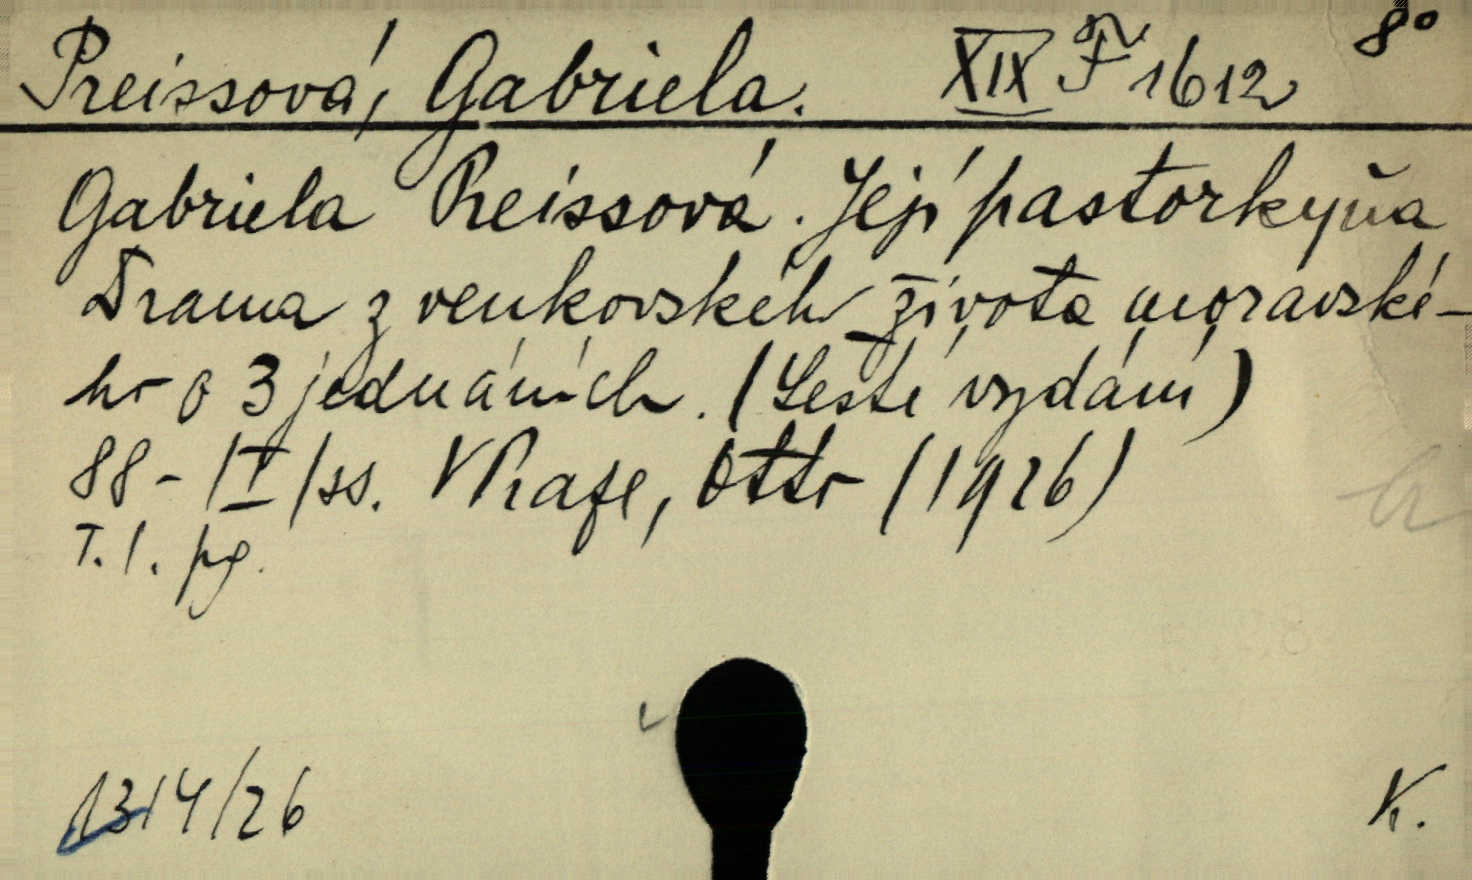 Preissová, Gabriela. XIX F 1612 8°
Gabriela Preissová. Její pastorkyňa
Drama z venkovskéh života moravské-
ho o 3 jednáních. (Šesté vydání)
88-/I/ss. V Praze, Otto (1926)
T. l. pg.
1314/26
K.